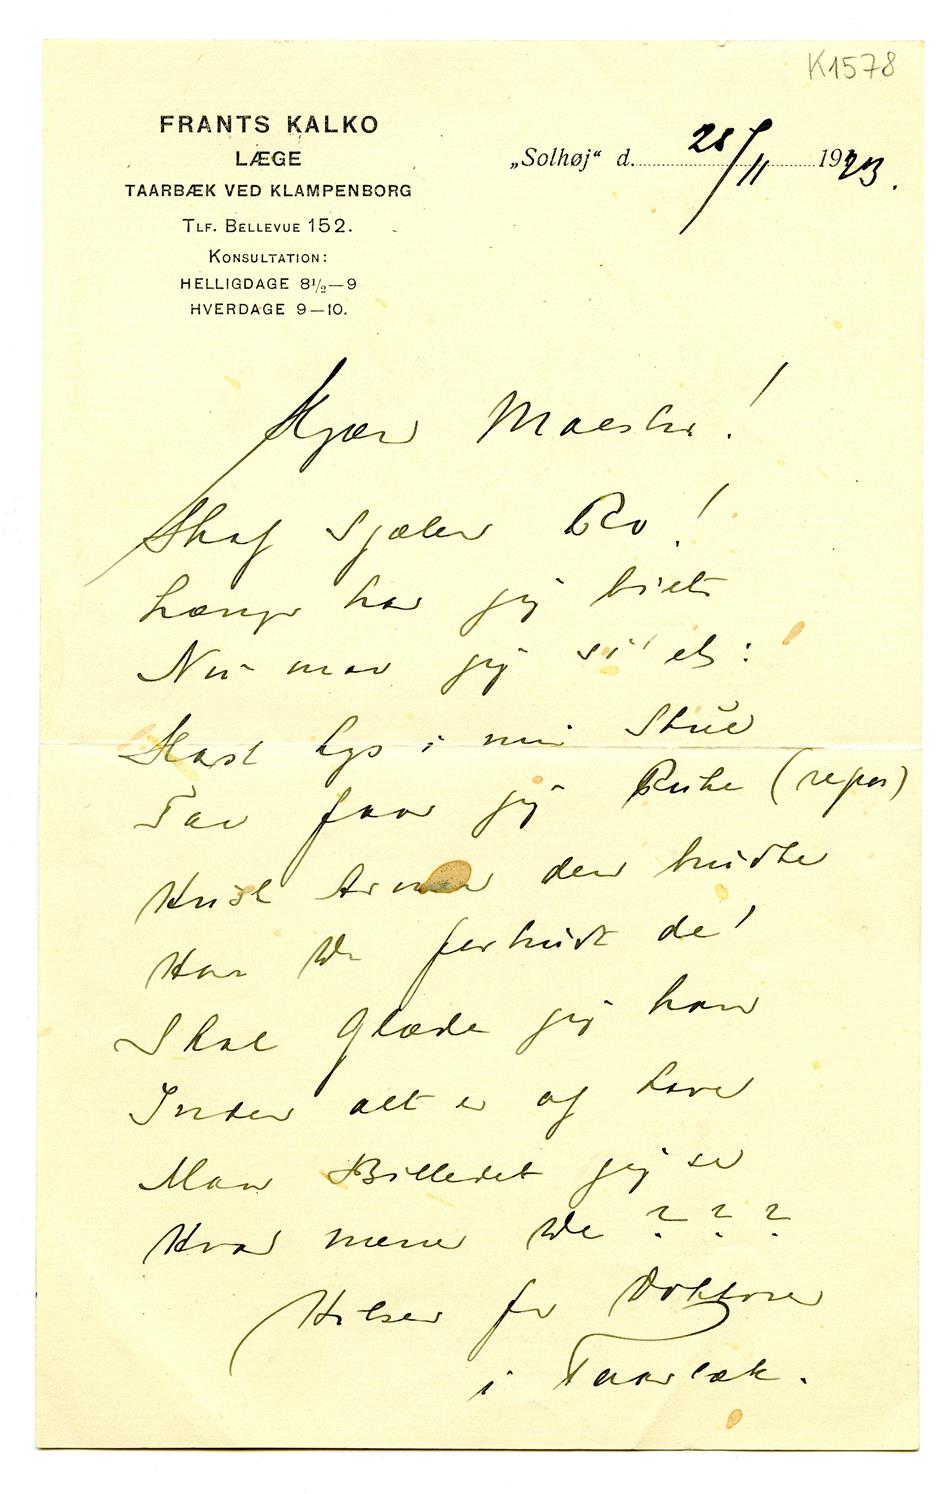 K1578
FRANTS KALKO
LÆGE
TAARBÆK VED KLAMPENBORG
TLF. BELLEVUE 152.
KONSULTATION:
HELLIGDAGE 8½—9
HVERDAGE 9—10.
„Solhøj“ d. 28/11 1923.
Kjære Maestro!
Skaf Sjælen Ro!
Længe har jeg biet
Nu maa jeg si' et:
Kast Lys i min Stue
Faa jeg Ruhe (repos)
Hust Armen den budte
Har De forbudt de!
Skal Glæde jeg have
Inden alt er af Lave
Maa Billedet jeg se
Hvad mener De ???
Hilsen fra Doktoren
i Taarbæk.